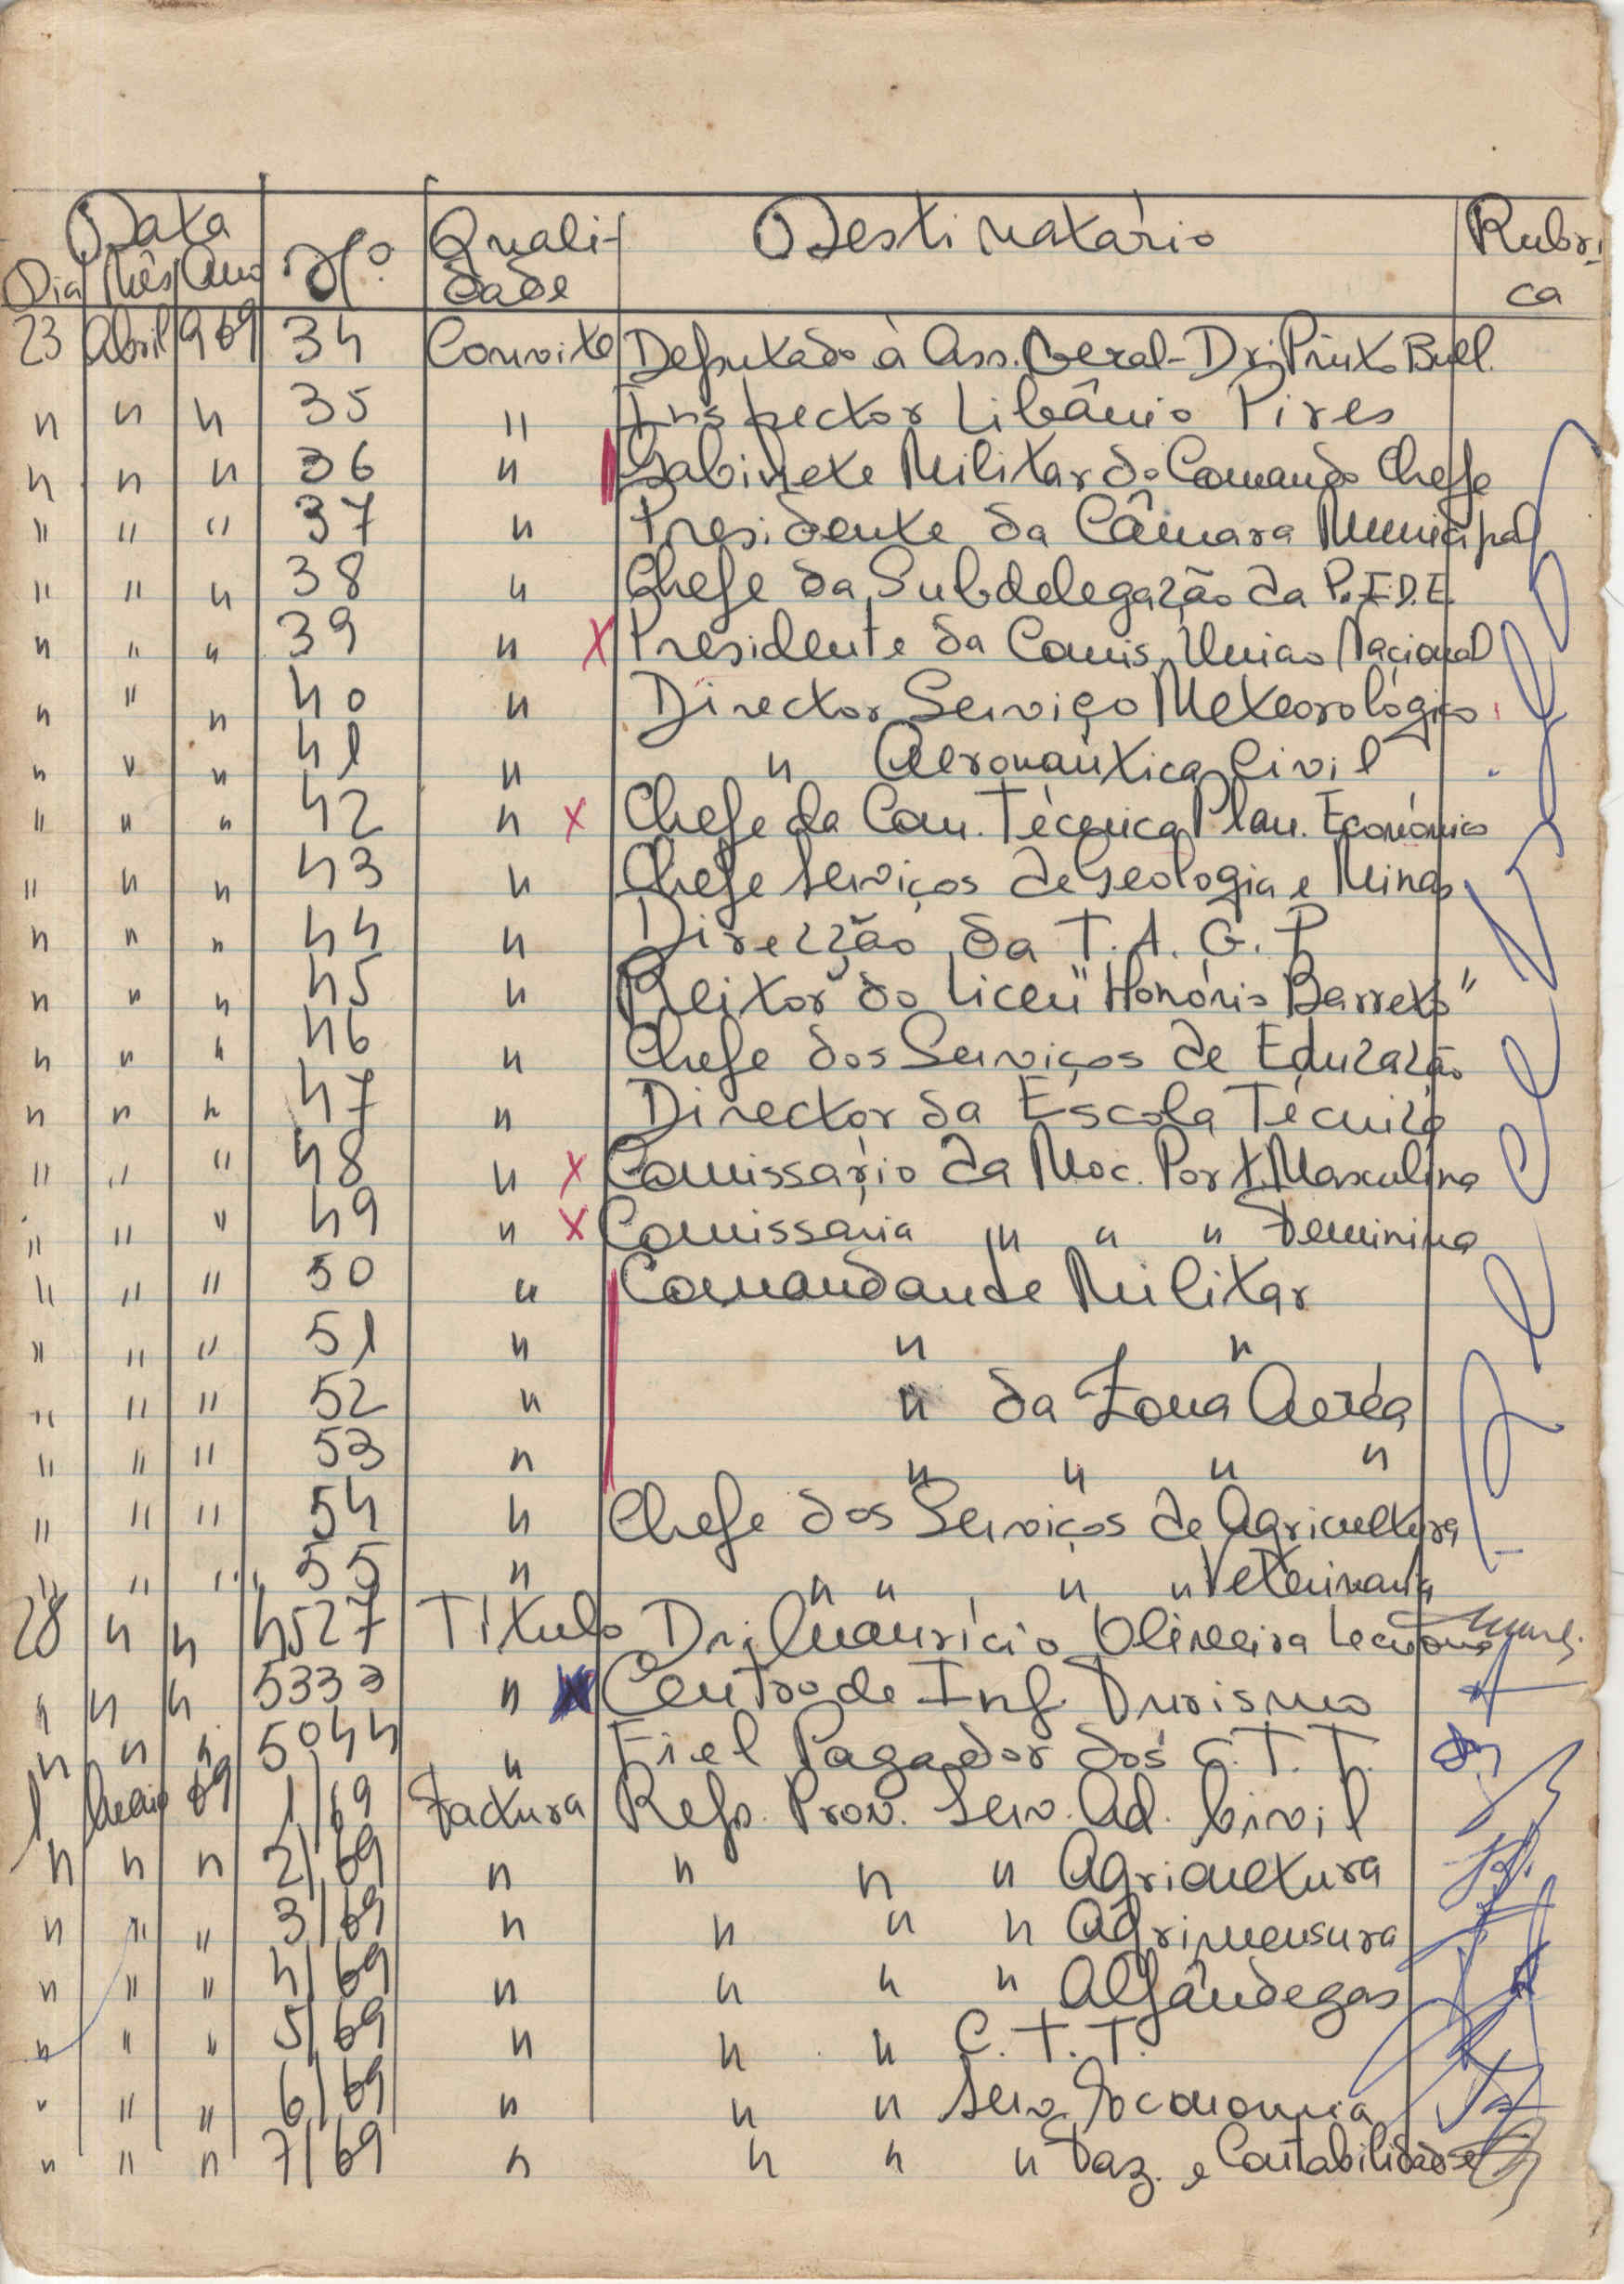 Data Nº. Quali- Destinatário Rubri-
Dia Mês Ano dade ca
23 Abril 969 34 Convite Deputado à Ass. Geral - Dr. Pinto Bull.
" " " 35 " Inspector Libânio Pires
" " " 36 " Gabinete Militar do Comando Chefe
" " " 37 " Presidente da Câmara Municipal
" " " 38 " Chefe da Subdelegação da P.I.D.E.
" " " 39 " X Presidente da Comis. União Nacional
" " " 40 " Director Serviço Meteorológico
" " " 41 " " Aeronaútica Civil
" " " 42 " X Chefe da Com. Técnica Plan. Económico
" " " 43 " Chefe Serviços de Geologia e Minas
" " " 44 " Direcção da T.A.G.P
" " " 45 " Reitor do Liceu "Honório Barreto"
" " " 46 " Chefe dos Serviços de Educação
" " " 47 " Director da Escola Técnica
" " " 48 " X Comissário da Moc. Port. Masculina
" " " 49 " X Comissaria " " " Feminina
" " " 50 " Comandante Militar
" " " 51 " " "
" " " 52 " " da Zona Aeréa
" " " 53 " " " " "
" " " 54 " Chefe dos Serviços de Agricultura
" " " 55 " " " " " Veterinaria
28 " " 4527 Título Dr. Mauricio Oliveira
" " " 5333 " Centro de Inf. Turismo
" " " 5044 " Fiel Pagador dos C.T.T.
1 Maio 69 1/69 Factura Rep. Prov. Serv. Ad. Civil
" " " 2/69 " " " " Agricultura
" " " 3/69 " " " " Agrimensura
" " " 4/69 " " " " Alfândegas
" " " 5/69 " " " C.T.T.
" " " 6/69 " " " Serv. Economia
" " " 7/69 " " " " Faz. e Contabilidade